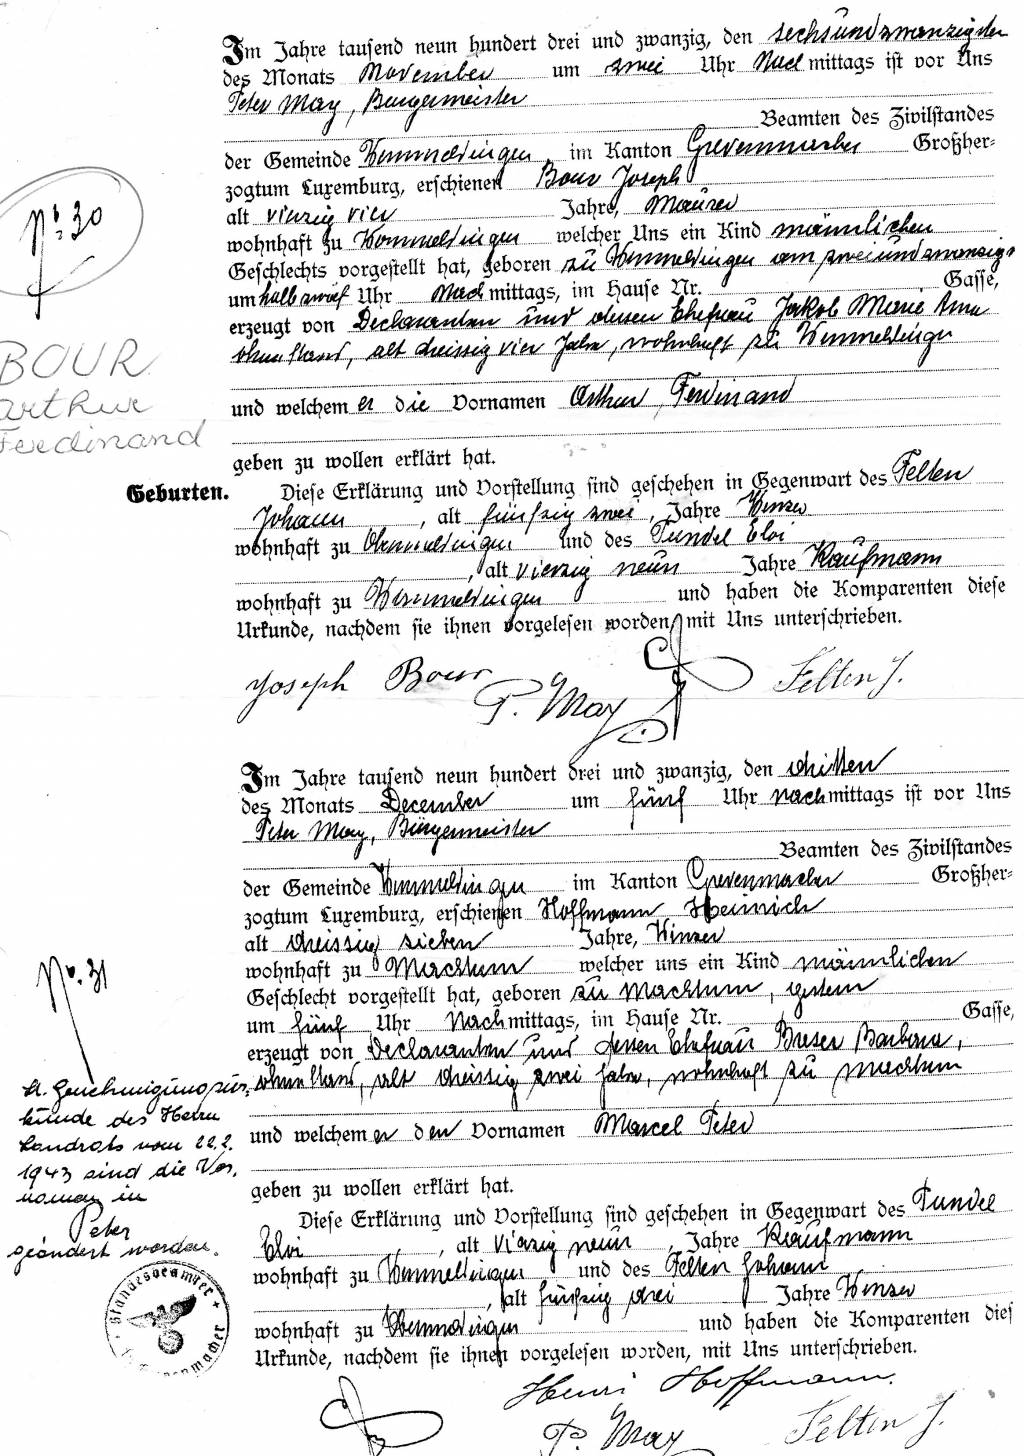 Im Jahre tausend neun hundert drei und zwanzig, den sechsundzwanzigsten
des Monats November um zwei Uhr Nachmittags ist vor Uns
Peter May, Bürgermeister
Beamten des Zivilstandes
der Gemeinde Wormeldingen, im Kanton Grevenmacher Großher-
zogtum Luxemburg, erschienen Bour Joseph
alt vierzig vier Jahre, Maurer
wohnhaft zu Wormeldingen welcher Uns ein Kind männlichen
Geschlechts vorgestellt hat, geboren zu Wormeldingen am zweiundzwanzigst
um halb zwölf Uhr Nachmittags, im Hause Nr. Gasse,
erzeugt von Declaranten und dessen Ehefrau Jakob Marie Anna
ohne Stand, alt dreissig vier Jahre, wohnhaft zu Wormeldingen
und welchem er die Vornamen Arthur, Ferdinand
geben zu wollen erklärt hat.
No 30
BOUR
Arthur
Ferdinand
Geburten.
Diese Erklärung und Vorstellung sind geschehen in Gegenwart des Felten
Johann, alt fünfzig zwei, Jahre Winzer
wohnhaft zu Wormeldingen und des Pundel Eloi
, alt vierzig neun Jahre Kaufmann
wohnhaft zu Wormeldingen und haben die Komparenten diese
Urkunde, nachdem sie ihnen vorgelesen worden, mit Uns unterschrieben.
Joseph Bour P. May Felten J.
Im Jahre tausend neun hundert drei und zwanzig, den dritten
des Monats December um fünf Uhr nachmittags ist vor Uns
Peter May, Bürgermeister
Beamten des Zivilstandes
der Gemeinde Wormeldingen im Kanton Grevenmacher Großher-
zogtum Luxemburg, erschienen Hoffmann Heinrich
alt dreissig sieben Jahre, Winzer
wohnhaft zu Machtum welcher uns ein Kind männlichen
Geschlecht vorgestellt hat, geboren zu Machtum, gestern
um fünf Uhr Nachmittags, im Hause Nr. Gasse,
erzeugt von Declaranten und dessen Ehefrau Breser Barbara,
ohne Stand, alt dreissig zwei Jahre, wohnhaft zu Machtum
und welchem er den Vornamen Marcel Peter
geben zu wollen erklärt hat.
No. 31
lt. Genehmigungsur-
kunde des Herrn
Landrats vom 22.2.
1943 sind die Vor-
namen in
Peter
geändert worden.
Standesbeamter
Diese Erklärung und Vorstellung sind geschehen in Gegenwart des Pundel
Eloi, alt vierzig neun, Jahre Kaufmann
wohnhaft zu Wormeldingen und des Felten Johann
, alt fünfzig drei Jahre Winzer
wohnhaft zu Wormeldingen und haben die Komparenten dies
Urkunde, nachdem sie ihnen vorgelesen worden, mit Uns unterschrieben.
Henri Hoffmann.
P. May Felten J.